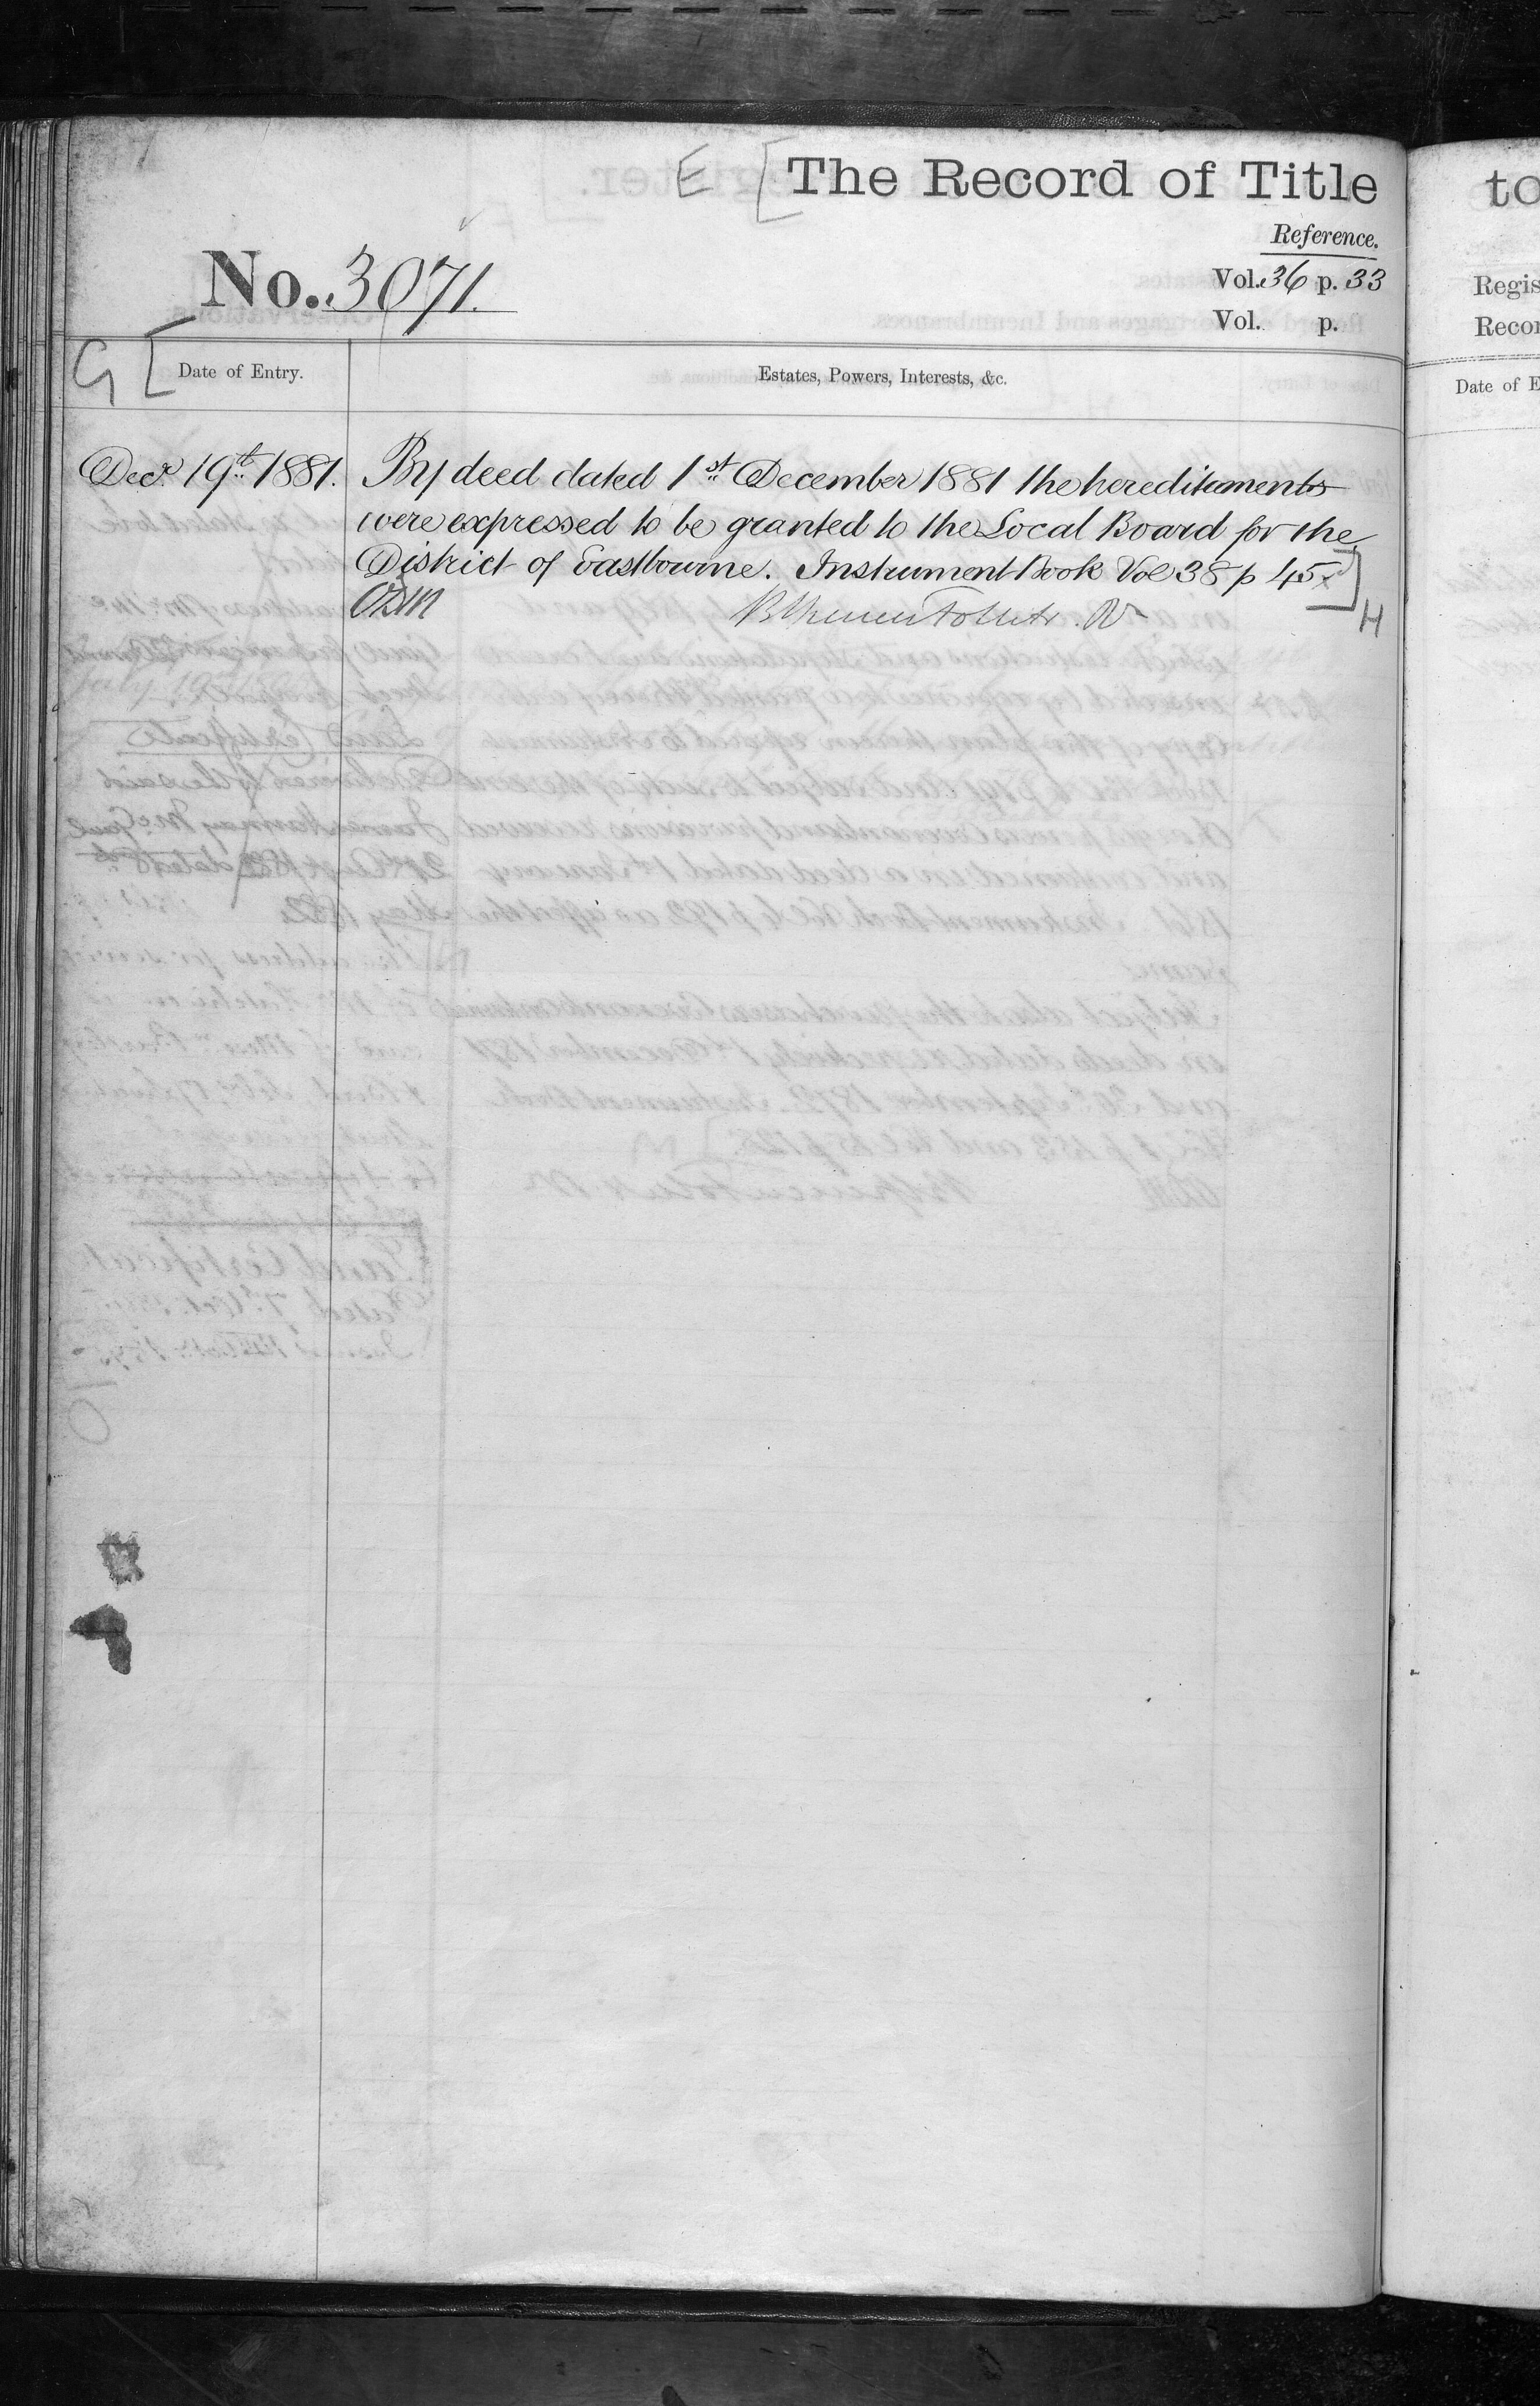 E [ The Record of Title
Reference.
No. 3071.
Vol. 36 p. 33
Vol. p.
G [ Date of Entry.
Estates, Powers, Interests, &c.
Decr 19th 1881. By deed dated 1st December 1881 the hereditaments
were expressed to be granted to the Local Board for the
District of Eastbourne. Instrument Book Vol 38 p 45 ]
H
to
Regis
Recor
Date of E